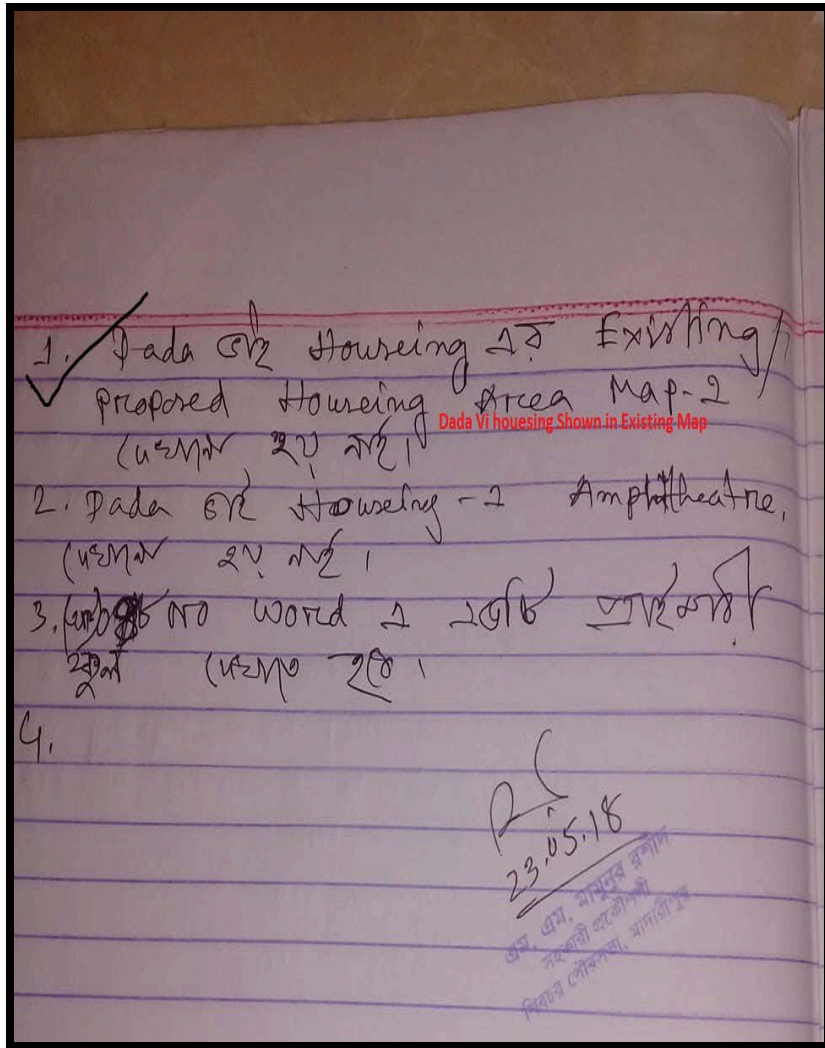 1. Dada ভাই Houseing এর Existing/
proposed Houseing Area Map-2
Dada Vi houesing Shown in Existing Map
দেখানো হয় নাই।
2. Dada ভাই Houseing - 2 Amphitheatre,
দেখানো হয় নাই।
3. No word এ একটি প্রাইমারী
স্কুল দেখাতে হবে।
4.
23.05.18
এম. এম. মামুনুর রশীদ
সহকারী প্রকৌশলী
শিবচর পৌরসভা, মাদারীপুর